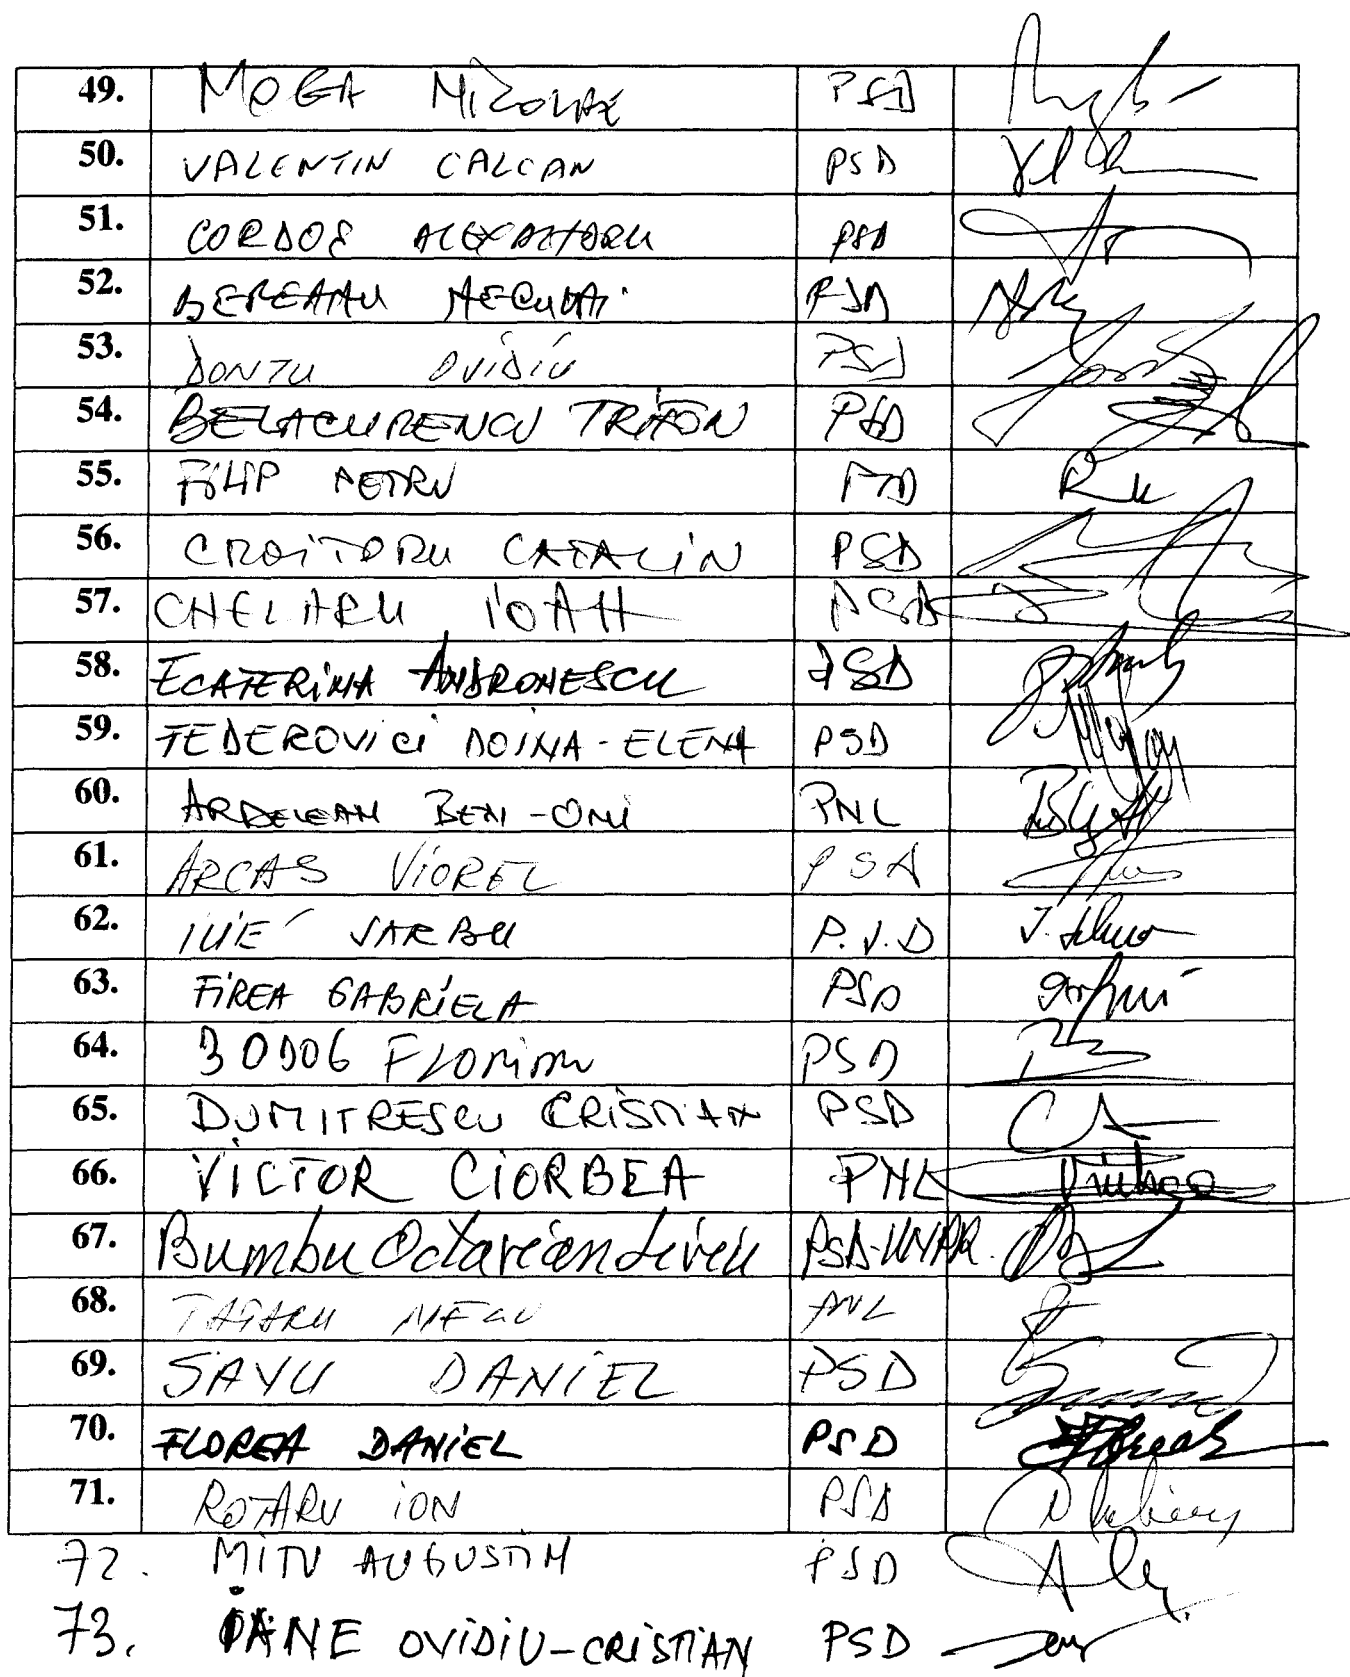 49. MOGA NICOLAE PSD
50. VALENTIN CALCAN PSD
51. CORDOS ALEXANDRU PSD
52. BEREANU NECULAI PSD
53. DONTU OVIDIU PSD
54. BELACURENCU TRIFON PSD
55. FILIP PETRU PSD
56. CROITORU CATALIN PSD
57. CHELARU IOAN PSD
58. ECATERINA ANDRONESCU PSD
59. FEDEROVICI DOINA-ELENA PSD
60. ARDELEAN BENI-ONI PNL
61. ARCAS VIOREL PSD
62. ILIE SARBU P.S.D
63. FIREA GABRIELA PSD
64. BODOG FLORIAN PSD
65. DUMITRESCU CRISTIAN PSD
66. VICTOR CIORBEA PNL
67. Bumbu Octavian Liviu PSD-UNPR.
68. TATARU NELU PNL
69. SAVU DANIEL PSD
70. FLOREA DANIEL PSD
71. ROTARU ION PSD
72. MITU AUGUSTIN PSD
73. IANE OVIDIU-CRISTIAN PSD